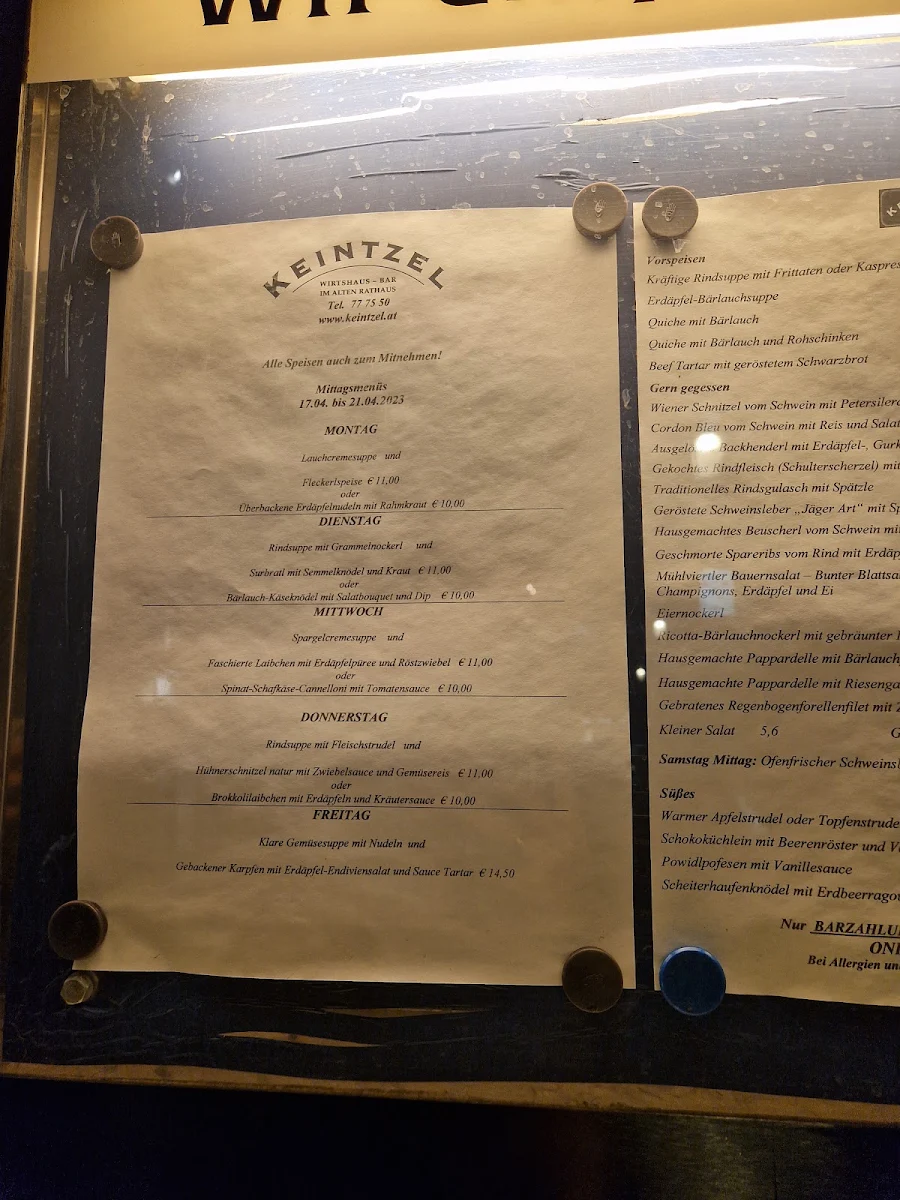 KEINTZEL
WIRTSHAUS – BAR
IM ALTEN RATHAUS
Tel. 77 75 50
www.keintzel.at
Alle Speisen auch zum Mitnehmen!
Mittagsmenüs
17.04. bis 21.04.2023
MONTAG
Lauchcremesuppe und
Fleckerlspeise € 11,00
oder
Überbackene Erdäpfelnudeln mit Rahmkraut € 10,00
DIENSTAG
Rindsuppe mit Grammelnockerl und
Surbratl mit Semmelknödel und Kraut € 11,00
oder
Bärlauch-Käseknödel mit Salatbouquet und Dip € 10,00
MITTWOCH
Spargelcremesuppe und
Faschierte Laibchen mit Erdäpfelpüree und Röstzwiebel € 11,00
oder
Spinat-Schafkäse-Cannelloni mit Tomatensauce € 10,00
DONNERSTAG
Rindsuppe mit Fleischstrudel und
Hühnerschnitzel natur mit Zwiebelsauce und Gemüsereis € 11,00
oder
Brokkolilaibchen mit Erdäpfeln und Kräutersauce € 10,00
FREITAG
Klare Gemüsesuppe mit Nudeln und
Gebackener Karpfen mit Erdäpfel-Endiviensalat und Sauce Tartar € 14,50
Vorspeisen
Kräftige Rindsuppe mit Frittaten oder Kaspres
Erdäpfel-Bärlauchsuppe
Quiche mit Bärlauch
Quiche mit Bärlauch und Rohschinken
Beef Tartar mit geröstetem Schwarzbrot
Gern gegessen
Wiener Schnitzel vom Schwein mit Petersiler
Cordon Bleu vom Schwein mit Reis und Salat
Backhenderl mit Erdäpfel-, Gurk
Gekochtes Rindfleisch (Schulterscherzel) mit
Traditionelles Rindsgulasch mit Spätzle
Geröstete Schweinsleber „Jäger Art“ mit Sp
Hausgemachtes Beuscherl vom Schwein mi
Geschmorte Spareribs vom Rind mit Erdäp
Mühlviertler Bauernsalat – Bunter Blattsa
Champignons, Erdäpfel und Ei
Eiernockerl
Ricotta-Bärlauchnockerl mit gebräunter
Hausgemachte Pappardelle mit Bärlauch
Hausgemachte Pappardelle mit Riesenga
Gebratenes Regenbogenforellenfilet mit Z
Kleiner Salat 5,6 G
Samstag Mittag: Ofenfrischer Schweinsl
Süßes
Warmer Apfelstrudel oder Topfenstrude
Schokoküchlein mit Beerenröster und V
Powidlpofesen mit Vanillesauce
Scheiterhaufenknödel mit Erdbeerrago
Nur BARZAHLU
ONL
Bei Allergien un